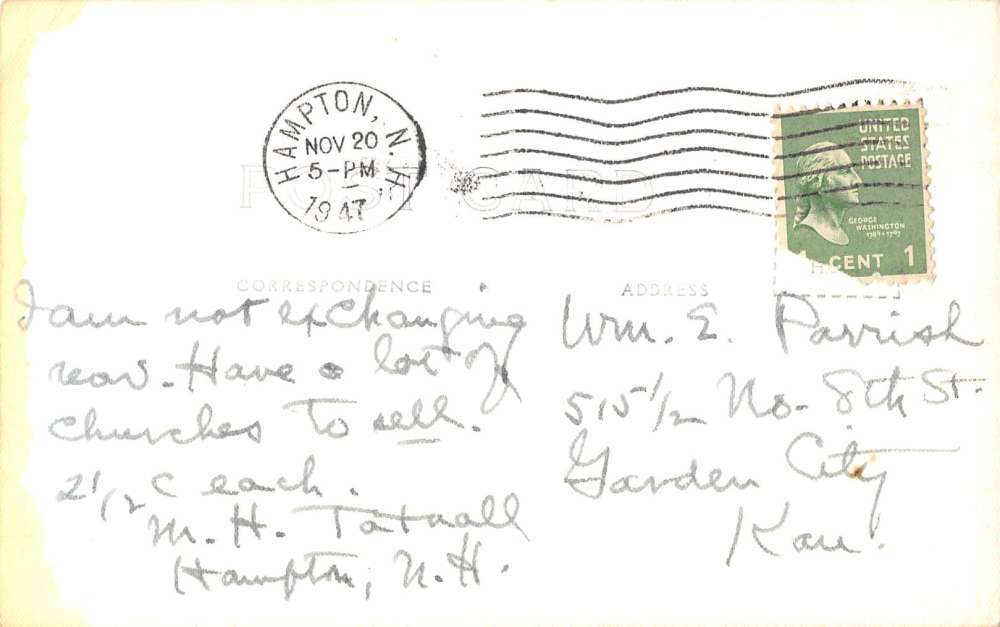 HAMPTON, N.H.
NOV 20
5-PM
1947
UNITED
STATES
POSTAGE
GEORGE
WASHINGTON
1789-1797
1 CENT 1
POST CARD
CORRESPONDENCE
ADDRESS
I am not exchanging
now. Have a lot of
churches to sell.
2 1/2 c each.
M. H. Tatnall
Hampton, N.H.
Wm. E. Parrish
515 1/2 No. 8th St.
Garden City
Kan.